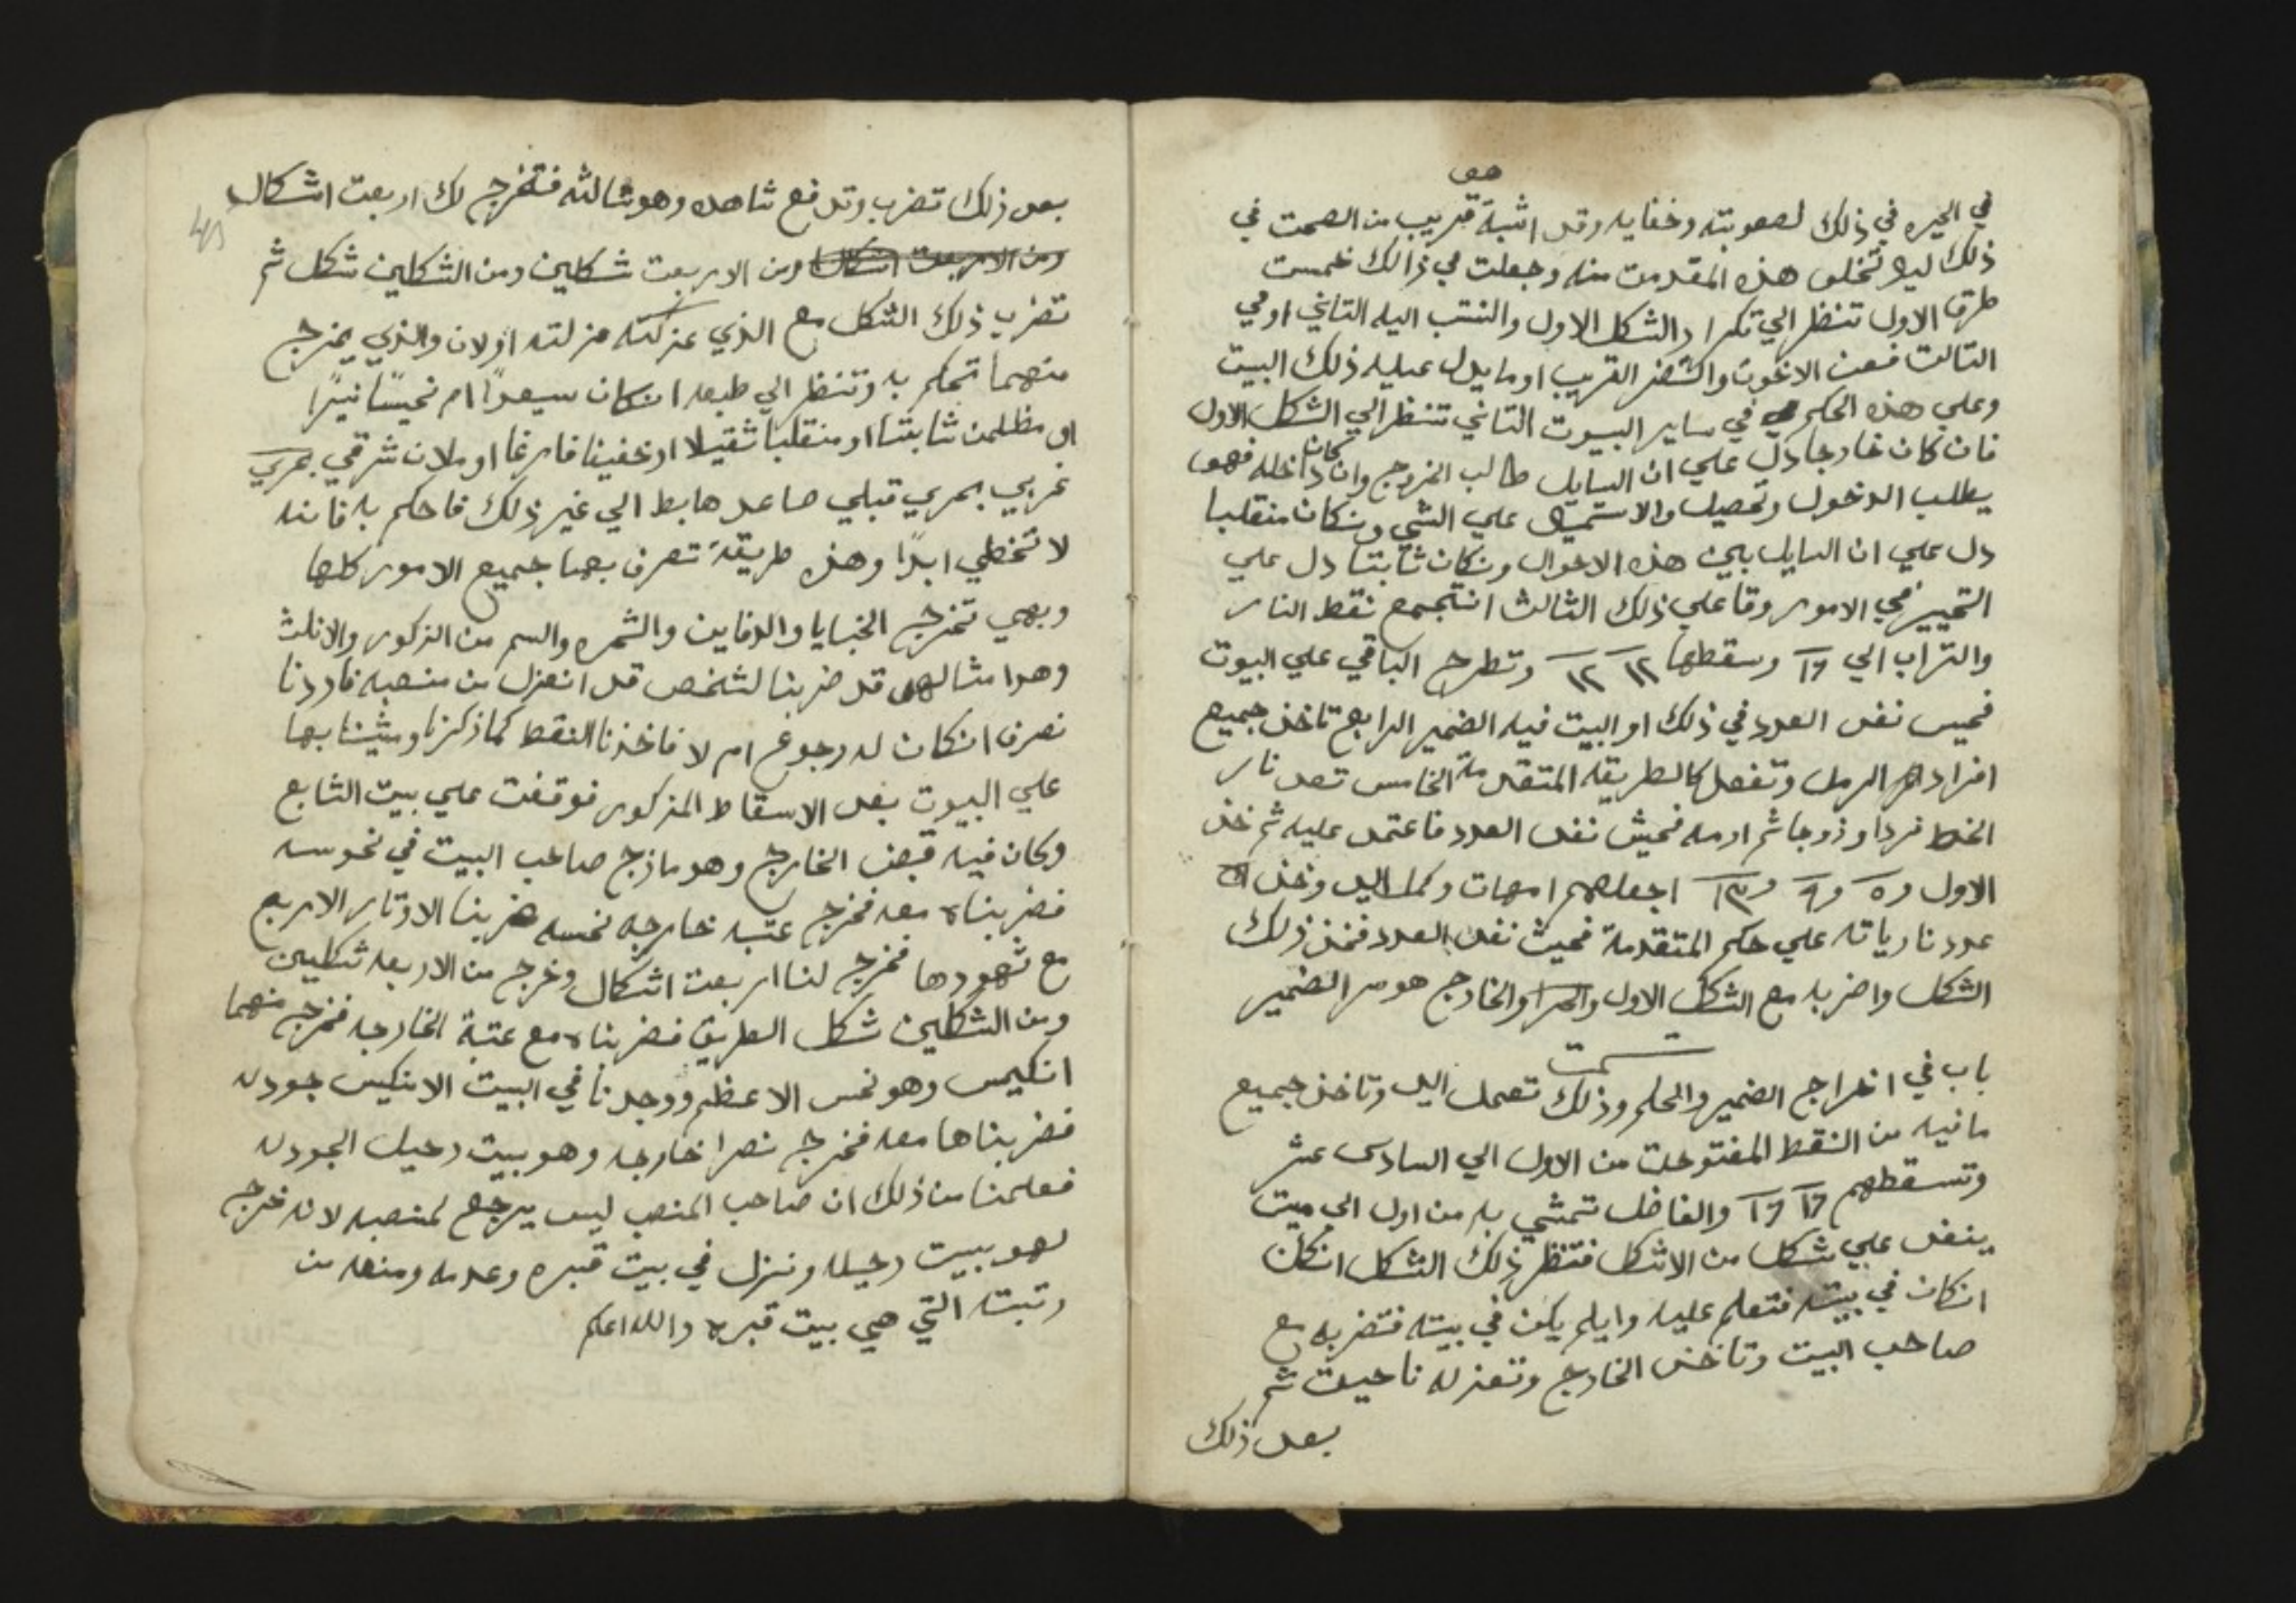 هو
في الحيره في ذلك لصعوبته وخفايه وقد اثبة قريب من الصمت في
ذلك ليلا تخلو هذه المقدمت منه وجعلت في ذالك خمست
طرق الاول تنظر الي تكرار الشكل الاول والنتب اليه التاني او في
التالت فعن الاخوت والشخر القريب او ما يدل عليه ذلك البيت
وعلي هذه الحكم في ساير البيوت التاني تنظر الي الشكل الاول
فان كان خارجا دل علي ان السايل طالب الخروج وان كان داخله فهو
يطلب الدخول وتحصيل والاستميال علي الشي ونكان منقلبا
دل علي ان السايل بين هذه الاحوال ونكان ثابتا دل علي
التحيير في الامور وقا علي ذلك الثالث انتجمع نقط النار
والتراب الي ١٦ وسقطها ١٢ ١٢ وتطرح الباقي علي البيوت
فحيس نفد العدد في ذلك او البيت فيه الضمير الرابع تاخذ جميع
افراد الرمل وتفعل كالطريقه المتقدمة الخامس تعد نار
الخط فردا وزوجا ثم ارمه فحيش نفد العدد فاعتمد عليه ثم خذ
الاول و٥ و٩ و١٣ اجعلهم امهات وكمل اليد وخذ
عدد نارياته علي حكم المتقدمة فحيث نفد العدد فخذ ذلك
الشكل واضربه مع الشكل الاول والخارج هو سر الضمير
تمت
باب في اخراج الضمير والحكم وذلك تعمل اليد وتاخذ جميع
ما فيه من النقط المفتوحت من الاول الي السادس عشر
وتسقطهم ١٦ ١٦ والفاضل تتمشي به من اول الي ميت
ينفد علي شكل من الاشكل فتنظر ذلك الشكل انكان
انكان في بيته فتعلم عليه وايلم يكن في بيته فتضربه مع
صاحب البيت وتاخذ الخارج وتعزله ناحيت ثم
بعد ذلك
بعد ذلك تضرب وتدفع شاهده وهو ثالثه فتخرج لك اربعت اشكال
ومن الاربعت اشكال ومن الاربعت شكلين ومن الشكلين شكل ثم
تضرب ذلك الشكل مع الذي عزلته منزلته اولان والذي يخرج
منهما تحكم به وتنظر الي طبعه انكان سيعدًا ام نحيسًا نيرًا
او مظلمن ثابتا او منقلبا ثقيلا او خفيفا فارغا او ملان شرقي بحري
غربي بحري قبلي صاعد هابط الي غير ذلك فاحكم به فانه
لا تخطي ابدًا وهذه طريقة تعرف بها جميع الامور كلها
وبهي تخرج الخبايا والدفاين والثمره والسم من الذكور والاناث
وهدا مثالهي قد ضربنا لشخص قد انعزل من منصبه فاردنا
نعرف انكان له رجوع ام لا فاخذنا النقط كما ذكرنا ومشينا بها
علي البيوت بعد الاسقاط المذكور فوقفت علي بيت التابع
وكان فيه قبض الخارج وهو مازج صاحب البيت في نحوسه
فضربناه معه فخرج عتبه خارجه نحسه ضربنا الاوتار الاربع
مع شهودها فخرج لنا اربعت اشكال وخرج من الاربعه شكلين
ومن الشكلين شكل الطريق فضربناه مع عتبة الخارجه فخرج منهما
انكيس وهو نحس الاعظم ووجدنا في البيت الانكيس جودله
فضربناها معه فخرج نصرا خارجه وهو بيت رحيل الجودله
فعلمنا من ذلك ان صاحب المنصب ليس يرجع لمنصبه لانه خرج
لهو بيت رحيله ونزل في بيت قبره وعدمه ومنعه من
رتبته التي هي بيت قبره والله اعلم